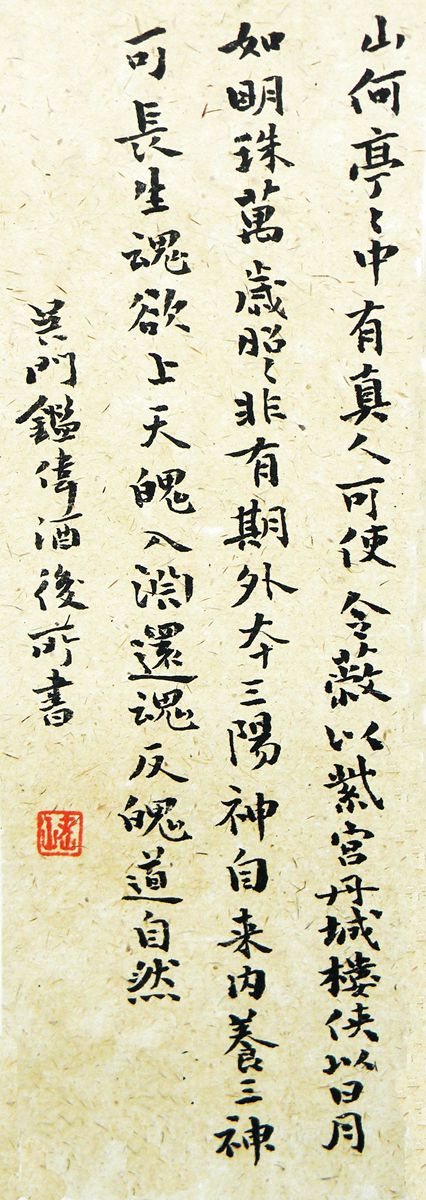 山何亭〻中有真人可使令蔽以紫宮丹城楼侠以日月
如明珠萬歳昭〻非有期外夲三陽神自来内養三神
可長生魂欲上天魄入淵還魂反魄道自然
吴門鑑偉酒後所書